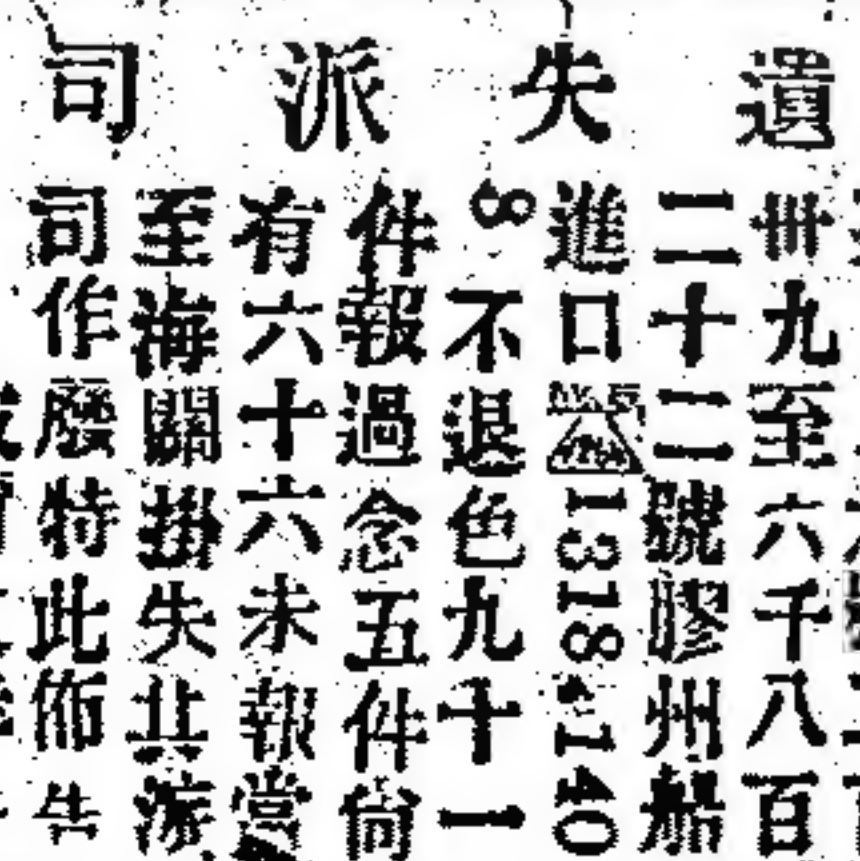 遺失派司
卅九至六千八百
二十二號膠州船
進口 1318.140
8不退色九十一
件報過念五件尙
有六十六未報嘗
至海關掛失共派
司作廢特此佈告